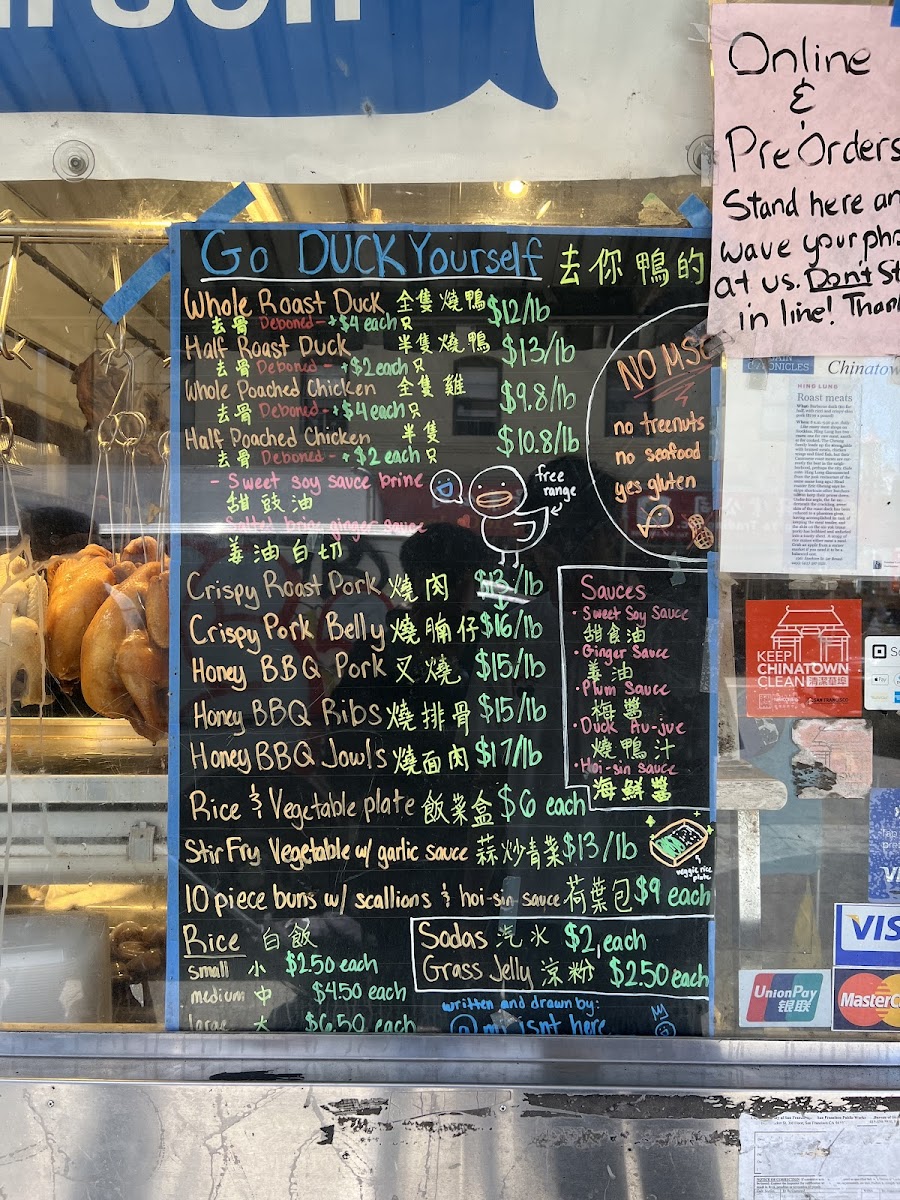 Online
&
PreOrders
Stand here an
wave your pho
at us. Don't St
in line! Than
Go DUCK Yourself 去你鴨的
Whole Roast Duck 全隻燒鴨 $12/lb
去骨 Deboned - +$4 each 只
Half Roast Duck 半隻燒鴨 $13/lb
去骨 Deboned - +$2 each 只
Whole Poached Chicken 全隻雞 $9.8/lb
去骨 Deboned - +$4 each 只
Half Poached Chicken 半隻 $10.8/lb
去骨 Deboned - +$2 each 只
- Sweet soy sauce brine
甜豉油
- Salted brine ginger sauce
姜油白切
free
range
NO MSG
no treenuts
no seafood
yes gluten
Crispy Roast Pork 燒肉 $13/lb
Crispy Pork Belly 燒腩仔 $16/lb
Honey BBQ Pork 叉燒 $15/lb
Honey BBQ Ribs 燒排骨 $15/lb
Honey BBQ Jowls 燒面肉 $17/lb
Sauces
· Sweet Soy Sauce
甜食油
· Ginger Sauce
姜油
· Plum Sauce
梅醬
· Duck Au-jue
燒鴨汁
· Hoi-sin sauce
海鮮醬
Rice & Vegetable plate 飯菜盒 $6 each
Stir Fry Vegetable w/ garlic sauce 蒜炒青菜 $13/lb
veggie rice
plate
10 piece buns w/ scallions & hoi-sin sauce 荷葉包 $9 each
Rice 白飯
small 小 $2.50 each
medium 中 $4.50 each
large 大 $6.50 each
Sodas 汽水 $2 each
Grass Jelly 涼粉 $2.50 each
written and drawn by:
isnt here
Chinatow
HING LUNG
Roast meats
KEEP
CHINATOWN
CLEAN
VISA
UnionPay
银联
MasterC